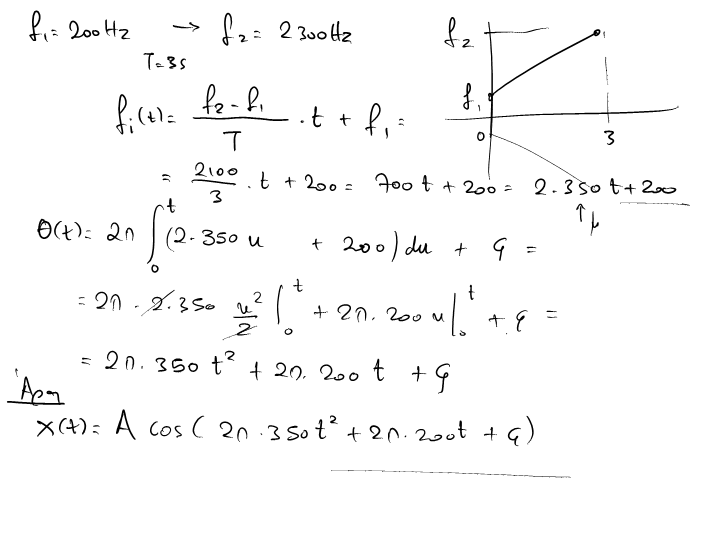 f₁ = 200 Hz → f₂ = 2300 Hz
T = 3s
f₂
f₁
0 3
fᵢ(t) = (f₂ - f₁)/T · t + f₁ =
= 2100/3 · t + 200 = 700 t + 200 = 2 · 350 t + 200
↑ μ
θ(t) = 2π ∫₀ᵗ (2 · 350 u + 200) du + φ =
= 2π · 2 · 350 u²/2 |₀ᵗ + 2π · 200 u |₀ᵗ + φ =
= 2π · 350 t² + 2π · 200 t + φ
Άρα
x(t) = A cos ( 2π · 350 t² + 2π · 200 t + φ)